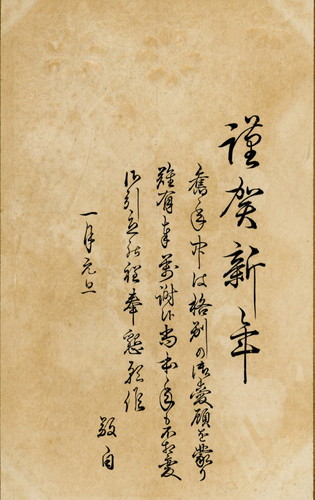 謹賀新年
舊年中は格別の御愛顧を蒙り
難有奉萬謝候尚本年も不相変
御引立の程奉懇願候
敬白
一月元旦